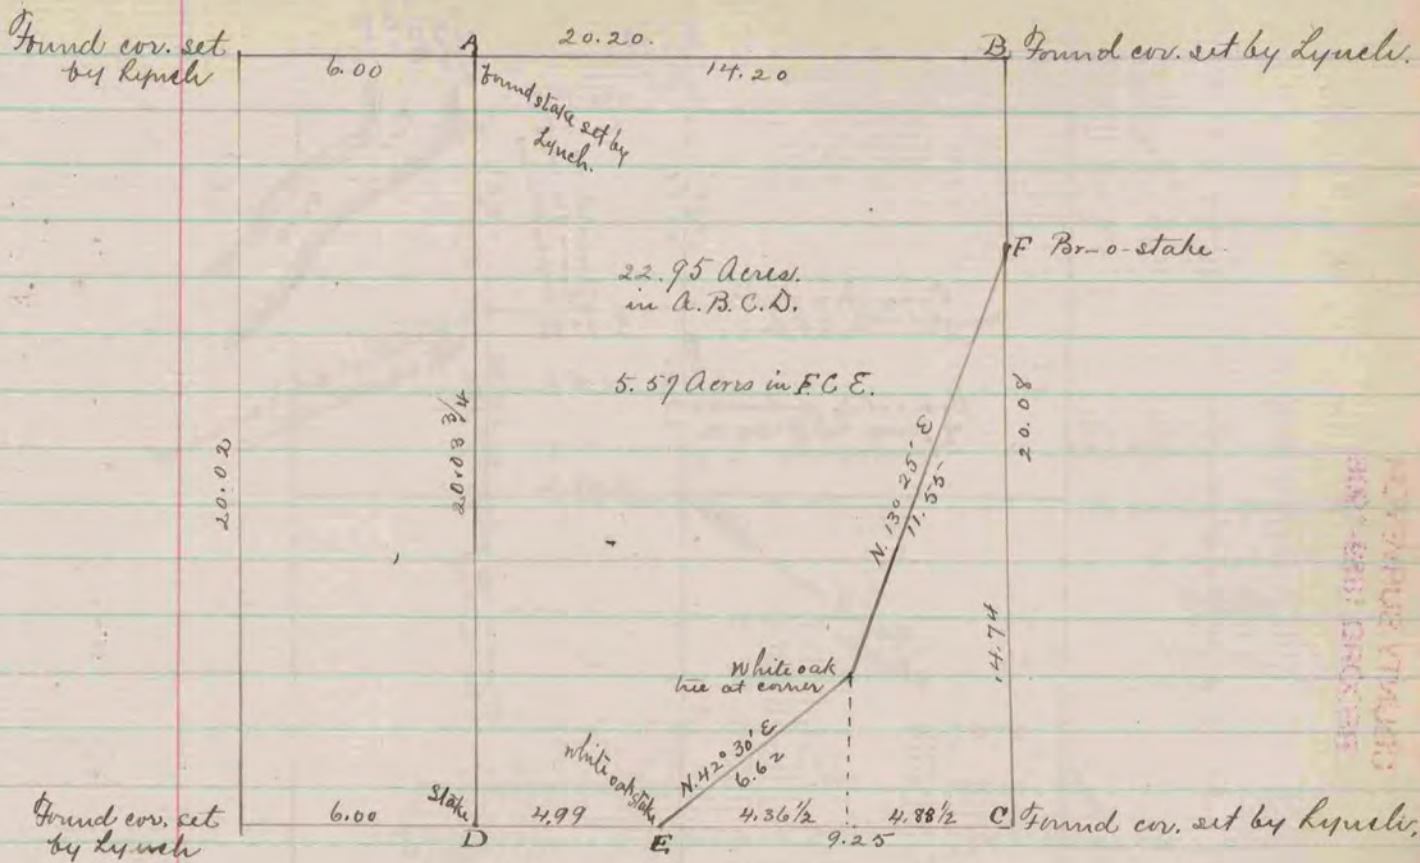 Found cor. set
by Lynch
A
20.20.
B
Found cor. set by Lynch.
6.00
14.20
Found stake set by
Lynch.
F Br-o-stake
22.95 Acres.
in A.B.C.D.
5.57 Acres in F.C.E.
20.02
20.03 3/4
20.08
N. 13° 25' E
11.55
14.74
White oak
tree at corner
white oak stake
N. 42° 30' E
6.62
Found cor. set
by Lynch
6.00
Stake
D
4.99
E
4.36 1/2
4.88 1/2
9.25
C
Found cor. set by Lynch.